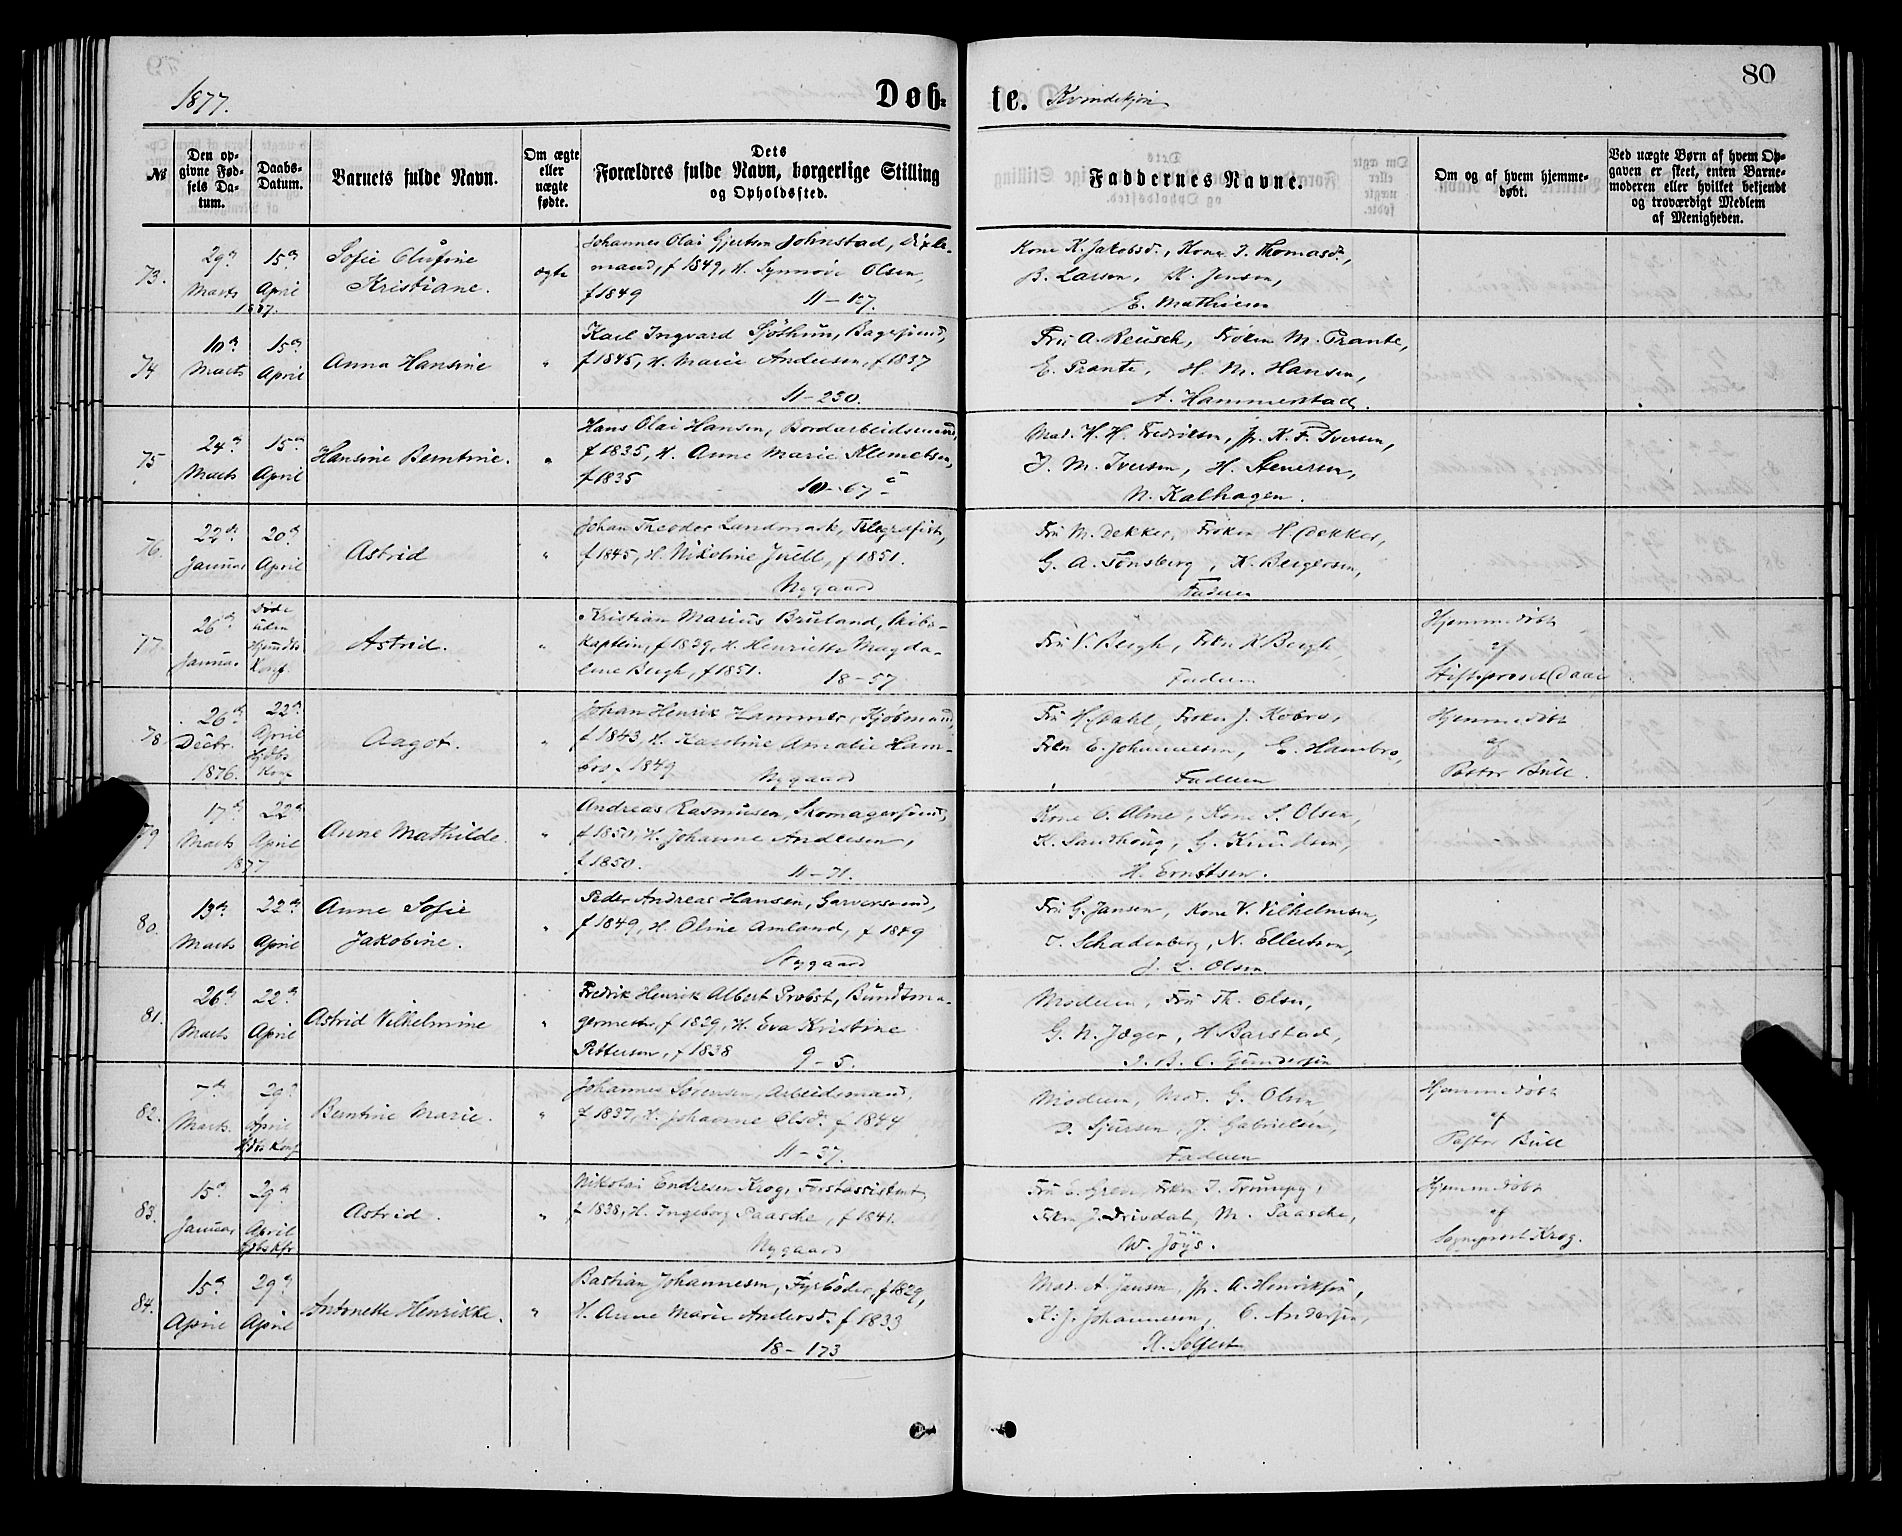 80
1877.
Døb-
te. Kvindekjøn
№
Den op-
givne Fød-
sels Da-
tum.
Daabs-
Datum.
Barnets fulde Navn.
Om ægte
eller
uægte
fødte.
Dets
Forældres fulde Navn, borgerlige Stilling
og Opholdssted.
Faddernes Navne.
Om og af hvem hjemme-
døbt.
Ved uægte Børn af hvem Op-
gaven er skeet, enten Barne-
moderen eller hvilket bekjendt
og troværdigt Medlem
af Menigheden.
73.
29de
Marts
15de
April
1877.
Sofie Olufine
Kristiane.
ægte
Johannes Olai Gjertsen Johnstad,
mand, f 1849, H. Synnøve Olsen,
f 1849 11-107.
Kone K. Jakobsd., Kone I. Thomasd.,
B. Larsen, K. Jensen,
E. Mathiesen
74
10de
Marts
15de
April
Anna Hansine
"
Karl Ingvard Sjøthun, Bagersvend,
f 1845, H. Marie Andersen, f 1837
11-230.
Fru A. Reusch, Frøken M. Prante,
E. Prante, H. M. Hansen,
A. Hammerstad.
75
24de
Marts
15de
April
Hansine Berntine.
"
Hans Olai Hansen, Bordarbeidsmand,
f 1835, H. Anne Marie Klemetsen,
f 1835 10-67 c
Mad. H. H. Fredriksen, jfr. K. F. Iversen,
J. M. Iversen, H. Stenersen,
N. Kalhagen.
76.
22de
Januar
20de
April
Astrid
"
Johan Theodor Landmark, Telegrafist,
f 1845, H. Nikoline Juell, f 1851.
Nygaard
Fru M. Dekker, Frøken H. Dekker,
G. A. Tønsberg, K. Bergersen,
Faderen
77.
26de
Januar
Døde
uden
Hjemdbs
Konf.
Astrid.
"
Kristian Marius Bruland, Skibs-
kaptein, f 1839, H. Henriette Magda-
lene Bergh, f 1851. 18-57
Fru V. Bergh, Frkn K Bergh,
Faderen
Hjemmedøbt
af
Stiftsprovst Daae
78
26de
Decbr.
1876.
22de
April
Hjdbs
Konf
Aagot.
"
Johan Henrik Hammer, Kjøbmand,
f 1843, H. Karoline Amalie Ham-
bro, 1849 Nygaard
Fru H. Dahl, Frøken J. Kobro,
Frkn E. Johannesen, E. Hambro,
Faderen
Hjemmedøbt
af
Pastor Bull.
79
17de
Marts
22de
April
1877
Anne Mathilde.
"
Andreas Rasmusen, Skomagersvend,
f 1850, H. Johanne Andersen,
f 1850. 11-71.
Kone O. Alme, Kone S. Olsen,
K. Sandhoug, G. Knudsen,
H. Erntsen.
80.
13de
Marts
22de
April
Anne Sofie
Jakobine.
"
Peder Andreas Hansen, Garversvend,
f 1849, H. Oline Amland, f 1849
Nygaard
Fru G. Jansen, Kone V. Vilhelmsen,
T. Schadenberg, N. Ellertsen,
J. L. Olsen
81.
26de
Marts
22de
April
Astrid Vilhelmine
"
Fredrik Henrik Albert Probst, Bundtma-
germester, f 1829, H. Eva Kristine
Pettersen, f 1838 9-5.
Moderen, Fru Th. Olsen,
G. N. Jæger, H. Barstad,
I. B. C. Gundersen
82.
7de
Marts
29de
April
Hjdbs Konf
Berntine Marie.
"
Johannes Sørensen, Arbeidsmand,
f 1837, H. Johanne Olsd. f 1844
11-37.
Moderen, Mad. G. Olsen
D. Sjursen, J. Gabrielsen,
Faderen
Hjemmedøbt
af
Pastor Bull
83.
15de
Januar
29de
April
Hjdbs Kfr
Astrid.
"
Nikolai Endresen Krog, Forstassistent,
f 1838, H. Ingeborg Paasche, f 1841.
Nygaard
Fru E. Greve, Frkn I. Trumpy,
Frkn J. Drivdal, M. Paasche,
W. Jøys.
Hjemmedøbt
af
Sogneprest Krog.
84.
15de
April
29de
April
Antonette Henrikke.
"
Bastian Johannesen, Fyrbøder, f 1829,
H. Anne Marie Andersd. f 1833
18-173
Mad. A Jansen, jfr. A. Henriksen,
K. J. Johannesen, C. Andersen,
A. Solfest